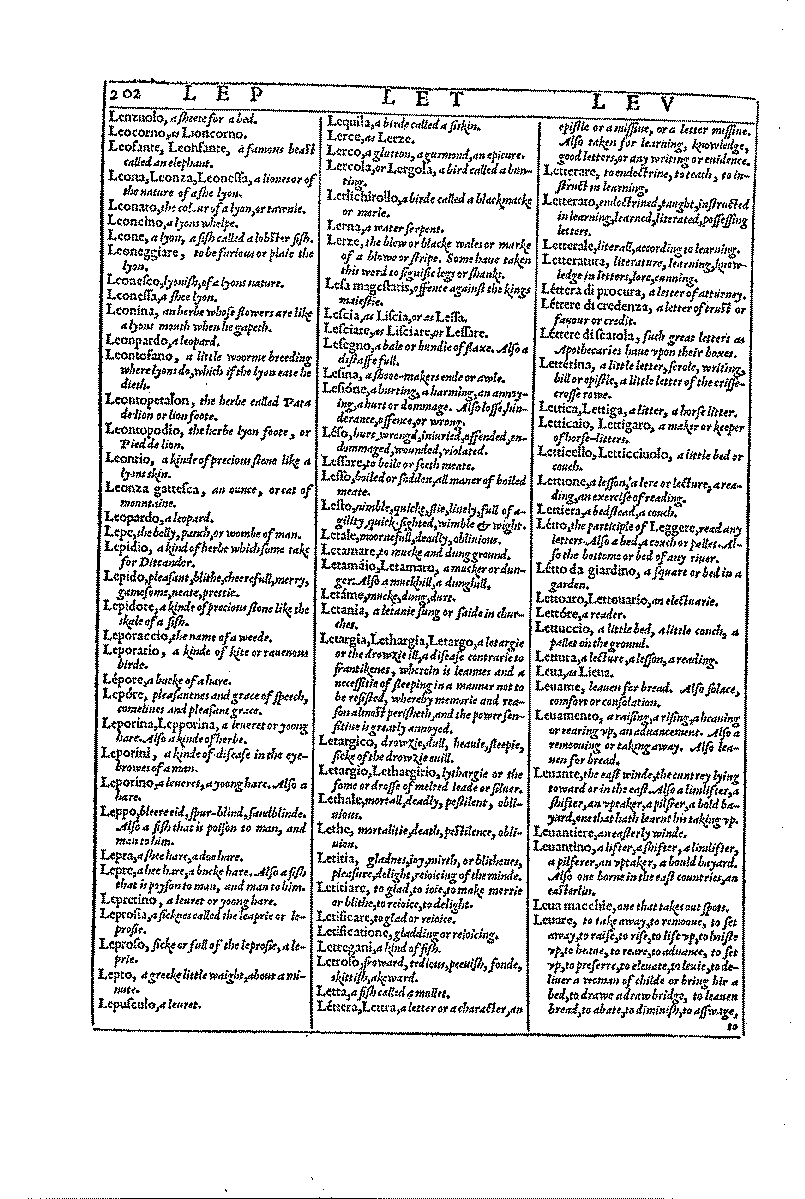 202 L E P L E T L E V
Lenzuolo, a sheete for a bed.
Leocorno, as Lioncorno.
Leofante, Leonfante, a famous beast
called an elephant.
Leona, Leonza, Leonessa, a lionesse or
the nature of a she lyon.
Leonato, the colour of a lyon, or tawnie.
Leoncino, a lyons whelpe.
Leone, a lyon, a fish called a lobster fish.
Leoneggiare, to be furious or plaie the
lyon.
Leonesco, lyonish, of a lyons nature.
Leonessa, a shee lyon.
Leonina, an herbe whose flowers are like
a lyons mouth when he gapeth.
Leonpardo, a leopard.
Leontofano, a little worme breeding
where lyons do, which if the lyon eate he
dieth.
Leontopetalon, the herbe called Pata
de lion or lion foote.
Leontopodio, the herbe lyon foote, or
Pied de lion.
Leontio, a kinde of precious stone like a
lyons skin.
Leonza gattesca, an ounce, or cat of
mountaine.
Leopardo, a leopard.
Lepe, the belly, panch, or wombe of man.
Lepidio, a kind of herbe which some take
for Dittander.
Lepido, pleasant, blithe, cheerefull, merry,
gamesome, neate, prettie.
Lepidote, a kinde of precious stone like the
skale of a fish.
Leporaccio, the name of a weede.
Leporario, a kinde of kite or rauenous
birde.
Lépore, a bucke of a hare.
Lepóre, pleasantnes and grace of speech,
comelines and pleasant grace.
Leporina, Lepporina, a leueret or yoong
hare. Also a kinde of herbe.
Leporini, a kinde of disease in the eye-
browes of a man.
Leporino, a leueret, a yoong hare. Also a
hare.
Leppo, bleere eid, spur-blind, sandblinde.
Also a fish that is poison to man, and
man to him.
Lepra, a shee hare, a doe hare.
Lepre, a hee hare, a bucke hare. Also a fish
that is poyson to man, and man to him.
Lepretino, a leuret or yoong hare.
Leprosia, a sicknes called the leaprie or le-
prosie.
Leproso, sicke or full of the leprosie, a le-
prie.
Lepto, a greeke little waight, about a mi-
nute.
Lepusculo, a leuret.
Lequila, a birde called a siskin.
Lerce, as Lerze.
Lerco, a glutton, a gurmond, an epicure.
Lercola, or Lergola, a bird called a bun-
ting.
Lerlichirollo, a birde called a blackmacke
or marle.
Lerna, a water serpent.
Lerze, the blew or blacke wales or marke
of a blowe or stripe. Some haue taken
this word to signifie legs or shanks.
Lesa magestatis, offence against the kings
maiestie.
Lescia, as Liscia, or as Lessa.
Lesciare, as Lisciare, or Lessare.
Lesegno, a bale or bundle of flaxe. Also a
distaffe full.
Lesina, a shooe-makers ende or awle.
Lesióne, a hurting, a harming, an annoy-
ing, a hurt or dommage. Also losse, hin-
derance, offence, or wrong.
Léso, hurt, wrongd, iniuried, offended, en-
dommaged, wounded, violated.
Lessare, to boile or seeth meate.
Lesso, boiled or sodden, all maner of boiled
meate.
Lesto, nimble, quicke, slie, liuely, full of a-
gility, quick sighted, wimble & wight.
Letale, mournefull, deadly, obliuious.
Letamare, to mucke and dung ground.
Letamáio, Letamaro, a mucker or dun-
ger. Also a muckhill, a dunghill.
Letáme, mucke, dung, durt.
Letania, a letanie sung or saide in chur-
ches.
Letargia, Lethargia, Letargo, a letargie
or the drowzie ill, a disease contrarie to
frantiknes, wherein is leannes and a
necessitie of sleeping in a manner not to
be resisted, whereby memorie and rea-
son almost perisheth, and the power sen-
sitiue is greatly annoyed.
Letargico, drowzie, dull, heauie, sleepie,
sicke of the drowzie euill.
Letargio, Lethargirio, lythargie or the
fome or drosse of melted leade or siluer.
Lethale, mortall, deadly, pestilent, obli-
uious.
Lethe, mortalitie, death, pestilence, obli-
uion.
Letitia, gladnes, ioy, mirth, or blithenes,
pleasure, delight, reioicing of the minde.
Letitiare, to glad, to ioie, to make merrie
or blithe, to reioice, to delight.
Letificare, to glad or reioice.
Letificatione, gladding or reioicing.
Letregani, a kind of fish.
Letroso, froward, tedious, peeuish, fonde,
skittish, akeward.
Letta, a fish called a mullet.
Léttera, Letera, a letter or a character, an
epistle or a missiue, or a letter missiue.
Also taken for learning, knowledge,
good letters, or any writing or euidence.
Letterare, to endoctrine, to teach, to in-
struct in learning.
Letterato, endoctrined, taught, instructed
in learning, learned, literated, possessing
letters.
Letterale, literall, according to learning.
Letteratura, literature, learning, know-
ledge in letters, lore, cunning.
Léttera di procura, a letter of atturney.
Léttere di credenza, a letter of trust or
fauour or credit.
Léttere di scatola, such great letters as
Apothecaries haue vpon their boxes.
Lettérina, a little letter, scrole, writing,
bill or epistle, a little letter of the crisse-
crosse rowe.
Lettica, Lettiga, a litter, a horse litter.
Letticaio, Lettigaro, a maker or keeper
of horse-litters.
Letticello, Letticciuolo, a little bed or
couch.
Lettione, a lesson, a lere or lecture, a rea-
ding, an exercise of reading.
Lettiera, a bedstead, a couch.
Létto, the participle of Leggere, read any
letters. Also a bed, a couch or pallet. Al-
so the bottome or bed of any riuer.
Létto da giardino, a square or bed in a
garden.
Lettoaro, Lettouario, an electuarie.
Lettóre, a reader.
Lettuccio, a little bed, a little couch, a
pallet on the ground.
Lettura, a lecture, a lesson, a reading.
Leua, as Lieua.
Leuame, leauen for bread. Also solace,
comfort or consolation.
Leuamento, a raising, a rising, a heauing
or rearing vp, an aduancement. Also a
remouing or taking away. Also lea-
uen for bread.
Leuante, the east winde, the cuntrey lying
toward or in the east. Also a limlifter, a
shifter, an vptaker, a pilfrer, a bold ba-
yard, one that hath learnt his taking vp.
Leuantiere, an easterly winde.
Leuantino, a lifter, a shifter, a limlifter,
a pilferer, an vptaker, a bould bayard.
Also one borne in the east countries, an
easterlin.
Leua macchie, one that takes out spots.
Leuare, to take away, to remooue, to set
away, to raise, to rise, to lift vp, to hoiste
vp, to heaue, to reare, to aduance, to set
vp, to preferre, to eleuate, to leuie, to de-
liuer a woman of childe or bring hir a
bed, to drawe a draw bridge, to leauen
bread, to abate, to diminish, to asswage,
to